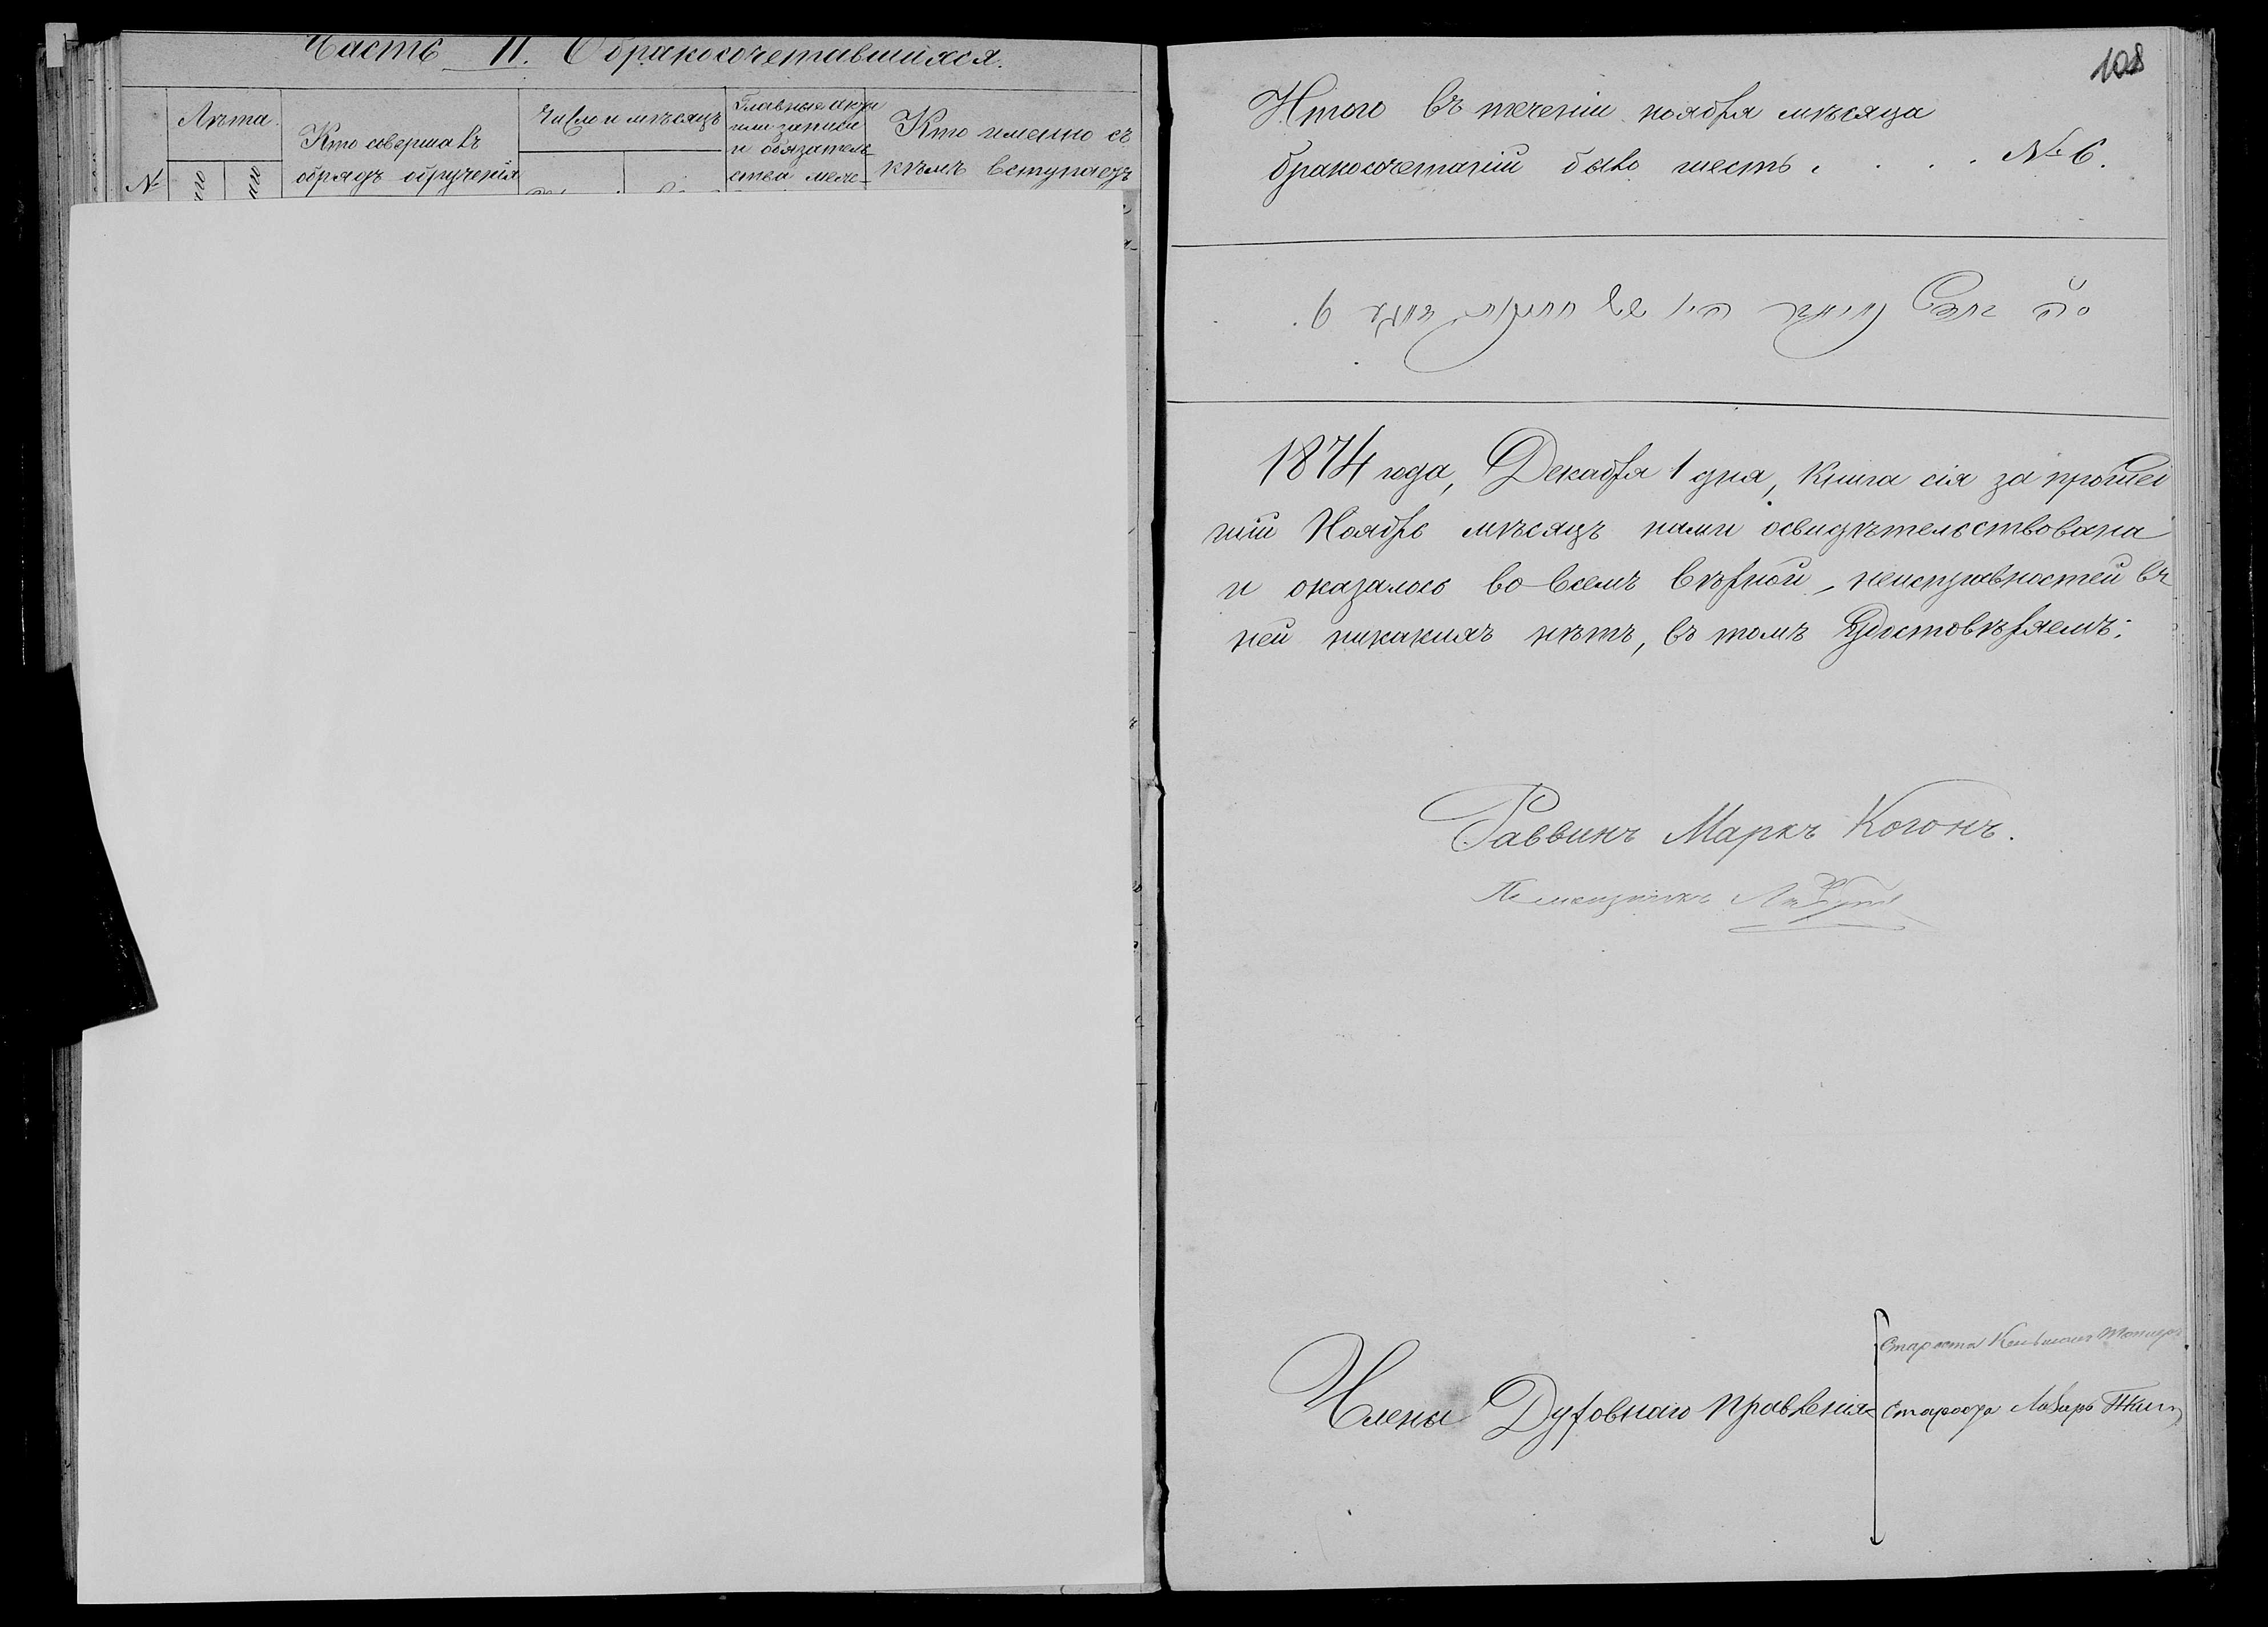 Часть II. О бракосочетавшихся.
№
Лѣта
Кто совершалъ
обрядъ обрученія
Число и мѣсяцъ
Главные акты
или записи
и обязатель-
ства меж-
Кто именно съ
кѣмъ вступаетъ
108
Итого въ теченіи ноября мѣсяца
бракосочетаній было шесть . . . . № 6.
6
1874 года, Декабря 1 дня, Книга сія за прошед
шій Ноябрь мѣсяцъ нами освидѣтельствована
и оказалось во всемъ вѣрной, неисправностей въ
ней никакихъ нѣтъ, въ томъ Удостовѣряемъ:
Раввинъ Маркъ Когонъ.
Помощникъ
Члены Духовнаго Правленія
Староста
Староста Лазарь